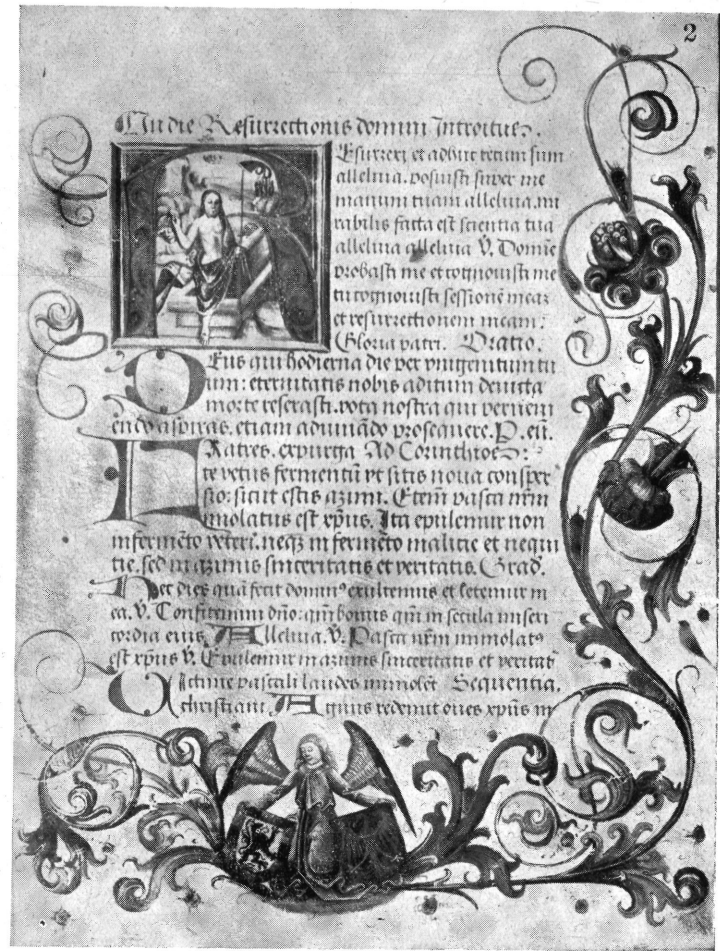 2
In die Resurrectionis domini Introitus.
Resurrexi et adhuc tecum sum
alleluia. posuisti super me
manum tuam alleluia. mi
rabilis facta est scientia tua
alleluia alleluia V. Domine
probasti me et cognouisti me
tu cognouisti sessionē meaz
et resurrectionem meam:
Gloria patri. Oratio.
Deus qui hodierna die per vnigenitum tu
um: eternitatis nobis aditum deuicta
morte reserasti. vota nostra que preueni
endo aspiras. etiam adiuuādo prosequere. P. eū.
Fratres. expurga Ad Corinthios:
te vetus fermentū vt sitis noua consper
sio: sicut estis azimi. Eteni pasca nrm
immolatus est xpus. Ita epulemur non
in fermēto veteri. neqz in fermēto malicie et nequi
tie. sed in azimis sinceritatis et veritatis. Grad.
Hec dies quā fecit dominꝰ exultemus et letemur in
ea. V. Confitemini dño: qm bonus qm in secula miseri
cordia eius. Alleluia. V. Pasca nrm immolatꝰ
est xpus V. Epulemur in azimis sinceritatis et veritat
Victime pascali laudes immolēt Sequentia.
christiani Agnus redemit oues xpus in